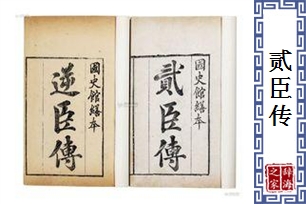 國史館繕本
逆臣傳
國史館繕本
貳臣傳
贰臣传
辞海之家